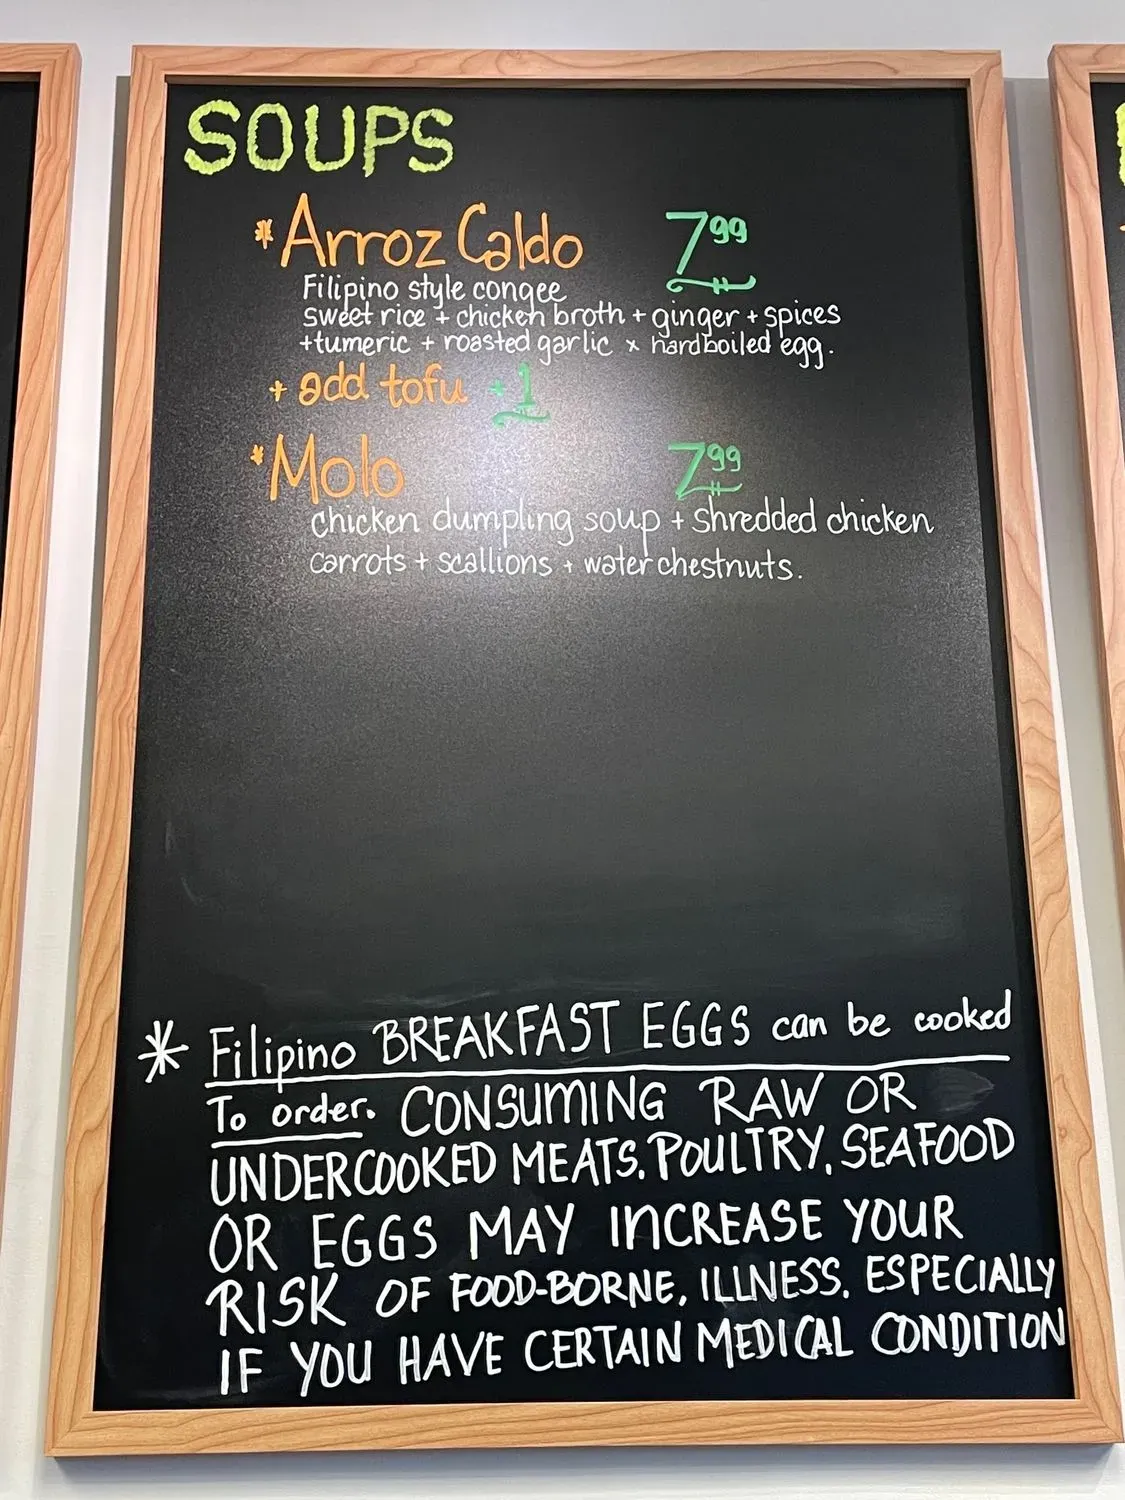 SOUPS
* Arroz Caldo 7.99
Filipino style congee
sweet rice + chicken broth + ginger + spices
+tumeric + roasted garlic x hardboiled egg.
+ add tofu +1
* Molo 7.99
chicken dumpling soup + shredded chicken
carrots + scallions + water chestnuts.
* Filipino BREAKFAST EGGS can be cooked
To order. CONSUMING RAW OR
UNDERCOOKED MEATS, POULTRY, SEAFOOD
OR EGGS MAY INCREASE YOUR
RISK OF FOOD-BORNE, ILLNESS, ESPECIALLY
IF YOU HAVE CERTAIN MEDICAL CONDITION